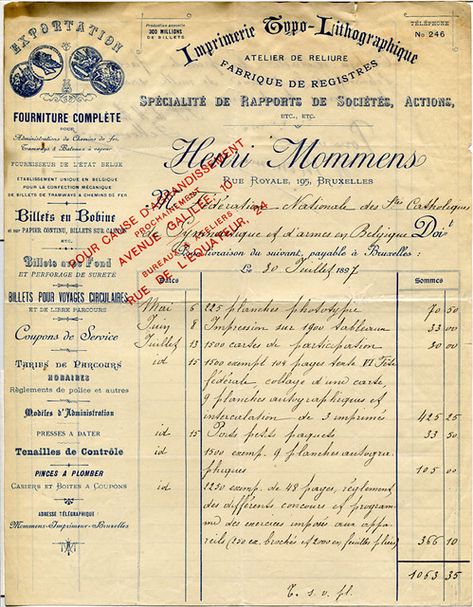 EXPORTATION
Production annuelle
300 MILLIONS
DE BILLETS
Imprimerie Typo-Lithographique
TÉLÉPHONE
No 246
ATELIER DE RELIURE
FABRIQUE DE REGISTRES
SPÉCIALITÉ DE RAPPORTS DE SOCIÉTÉS, ACTIONS,
ETC., ETC.
Henri Mommens
RUE ROYALE, 195, BRUXELLES
FOURNITURE COMPLÈTE
POUR
Administrations de Chemins de fer,
Tramways & Bateaux à vapeur
FOURNISSEUR DE L'ÉTAT BELGE
ÉTABLISSEMENT UNIQUE EN BELGIQUE
POUR LA CONFECTION MÉCANIQUE
DE BILLETS DE TRAMWAYS & CHEMINS DE FER
Billets en Bobine
et sur PAPIER CONTINU, BILLETS SUR CARTON
ETC.
Billets avec Fond
ET PERFORAGE DE SURETÉ
BILLETS POUR VOYAGES CIRCULAIRES
ET DE LIBRE PARCOURS
Coupons de Service
TARIFS DE PARCOURS
HORAIRES
Règlements de police et autres
Modèles d'Administration
PRESSES A DATER
Tenailles de Contrôle
PINCES A PLOMBER
CASIERS ET BOITES A COUPONS
ADRESSE TÉLÉGRAPHIQUE:
Mommens-Imprimeur-Bruxelles
POUR CAUSE D'AGRANDISSEMENT
PROCHAINEMENT
AVENUE GALILÉE, 10
BUREAUX & ATELIERS
RUE DE L'EQUATEUR, 24
M Fédération Nationale des Stes Catholiques
de Gymnastique et d'armes en Belgique Doit
pour livraison du suivant, payable à Bruxelles:
LE 30 Juillet 1897
DATES SOMMES
Mai 6 225 planches phototypie 70 50
Juin 8 Impression sur 1900 tableaux 33 00
Juillet 13 1500 cartes de participation 30 00
id 15 1500 exempl 104 pages texte VI Fête
fédérale, collage d'une carte,
9 planches autographiques et
intercalation de 3 imprimés 425 25
id 15 Ports petits paquets 33 50
id 1500 exemp. 9 planches autogra-
phiques 105 00
id 2250 exemp. de 48 pages, règlement
des différents concours et program-
me des exercices imposés aux appa-
reils (250 ex. brochés et 2000 en feuilles pliées) 366 10
1063 35
T. s. v. pl.